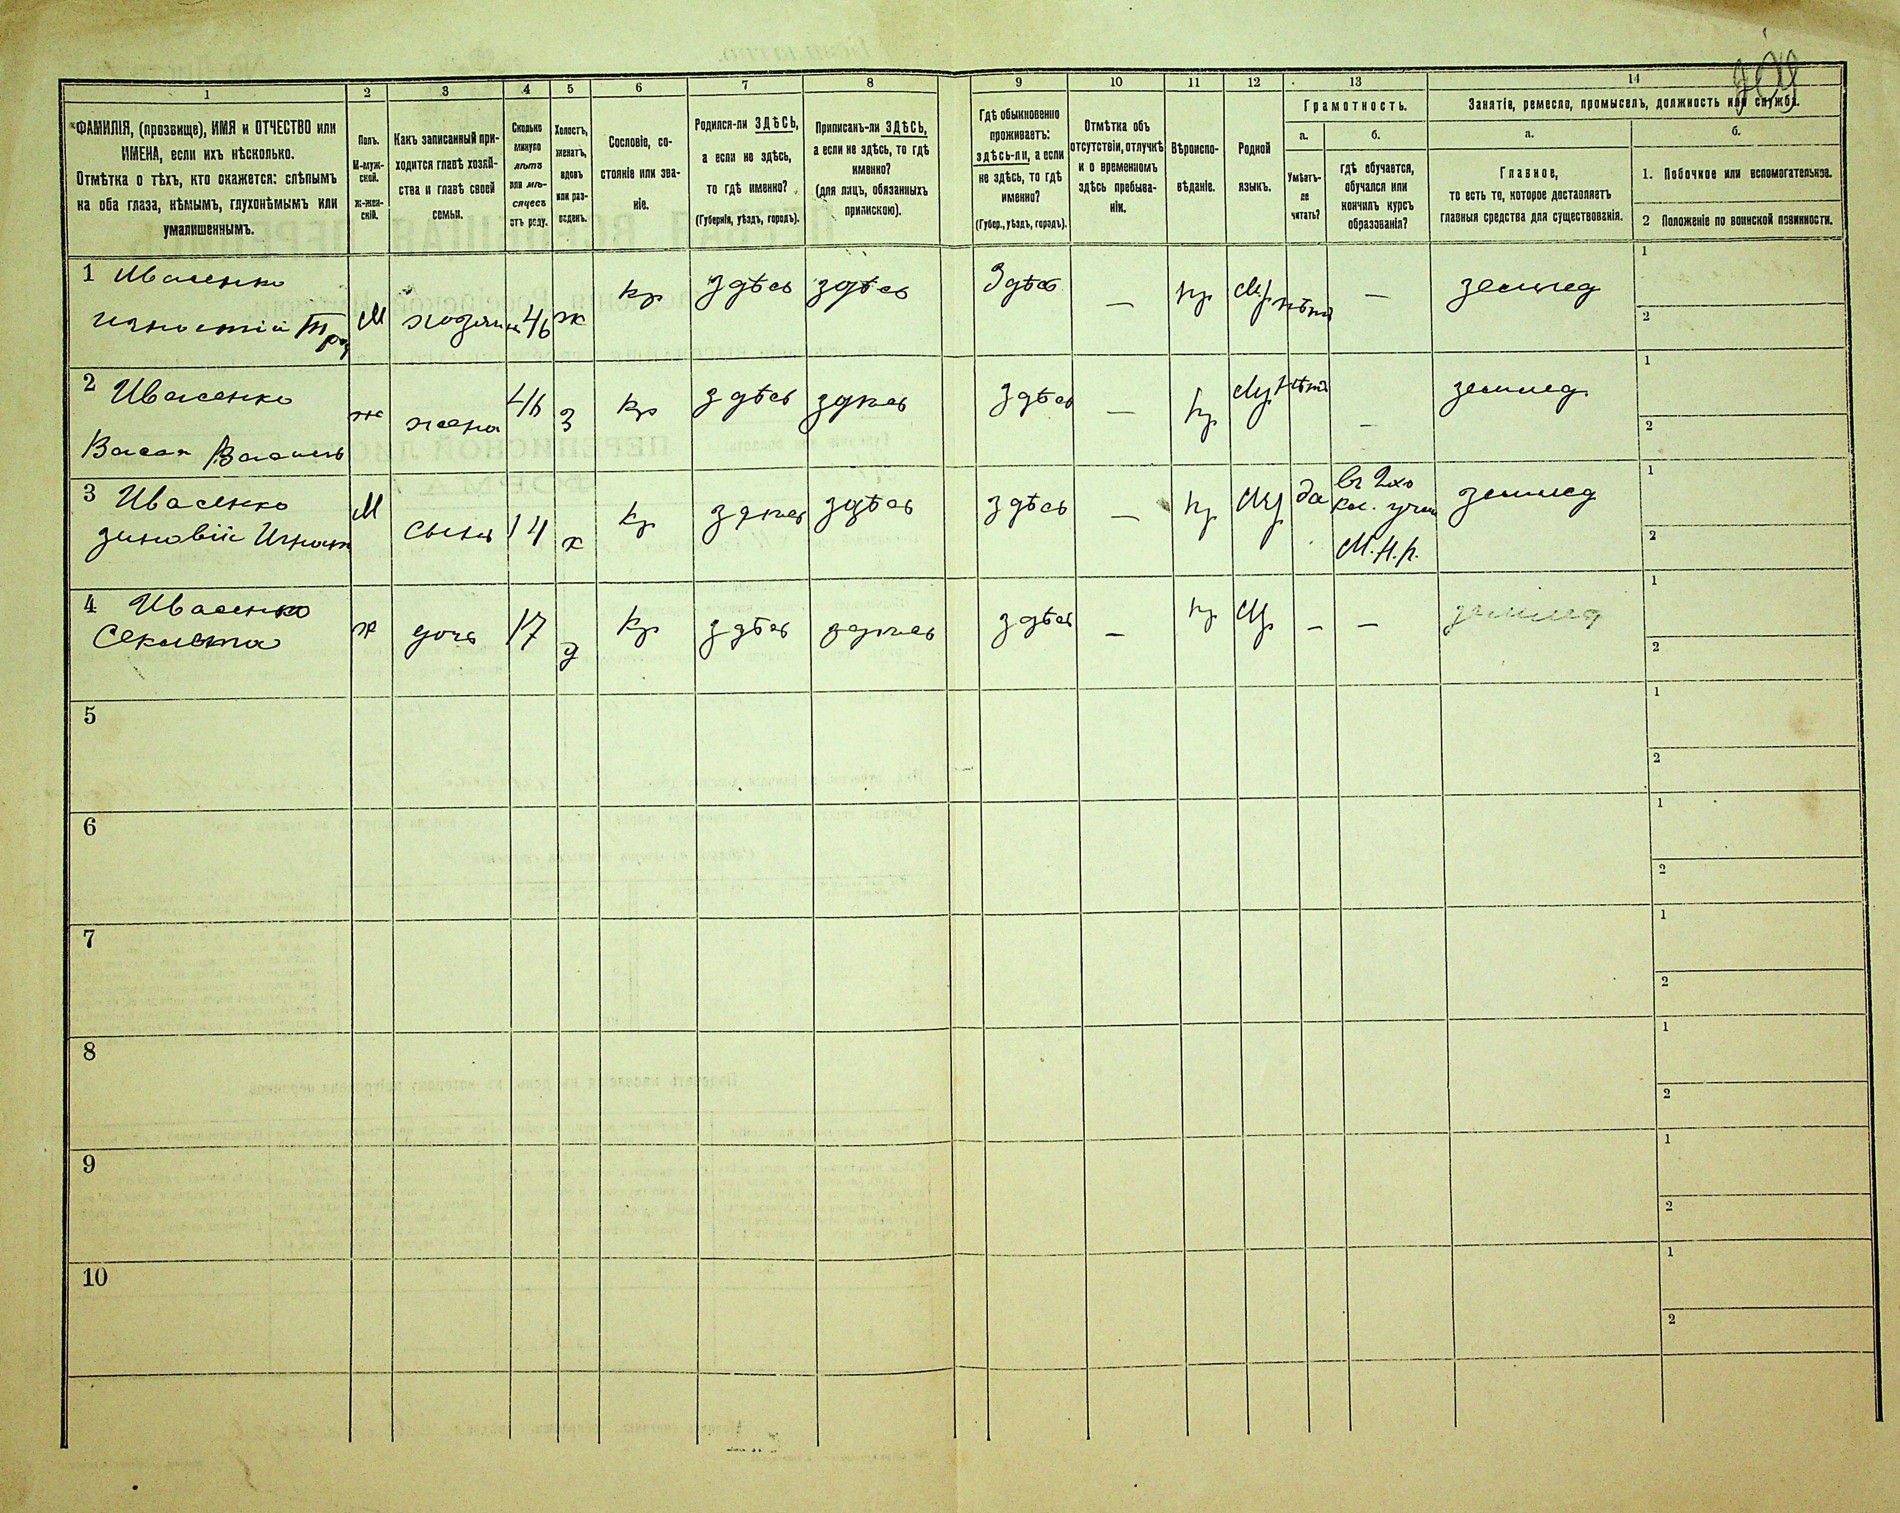 1 2 3 4 5 6 7 8 9 10 11 12 13 14
ФАМИЛІЯ, (прозвище), ИМЯ и ОТЧЕСТВО или
ИМЕНА, если ихъ нѣсколько.
Отмѣтка о тѣхъ, кто окажется: слѣпымъ
на оба глаза, нѣмымъ, глухонѣмымъ или
умалишеннымъ.
Полъ.
М-муж-
ской.
ж-жен-
скій.
Какъ записанный при-
ходится главѣ хозяй-
ства и главѣ своей
семьи.
Сколько
минуло
лѣтъ
или мѣ-
сяцевъ
отъ роду.
Холостъ,
женатъ,
вдовъ
или раз-
веденъ.
Сословіе, со-
стояніе или зва-
ніе.
Родился-ли ЗДѢСЬ,
а если не здѣсь,
то гдѣ именно?
(Губернія, уѣздъ, городъ).
Приписанъ-ли ЗДѢСЬ,
а если не здѣсь, то гдѣ
именно?
(для лицъ, обязанныхъ
припискою).
Гдѣ обыкновенно
проживаетъ:
здѣсь-ли, а если
не здѣсь, то гдѣ
именно?
(Губер., уѣздъ, городъ).
Отмѣтка объ
отсутствіи, отлучкѣ
и о временномъ
здѣсь пребыва-
ніи.
Вѣроиспо-
вѣданіе.
Родной
языкъ.
Грамотность.
а. б.
Умѣетъ-
ли
читать?
гдѣ обучается,
обучался или
кончилъ курсъ
образованія?
Занятіе, ремесло, промыселъ, должность или служба.
а. б.
Главное,
то есть то, которое доставляетъ
главныя средства для существованія.
1. Побочное или вспомогательное.
2 Положеніе по воинской повинности.
1 Ивасенко
М хозяинъ 46 ж кр здѣсь здѣсь здѣсь — пр нѣтъ — землед
1
2
2 Ивасенко
ж жена 46 з кр здѣсь здѣсь здѣсь — пр нѣтъ — землед
1
2
3 Ивасенко
зиновій Игнат
М сынъ 14 х кр здѣсь здѣсь здѣсь — пр да
М.Н.П.
землед
1
2
4 Ивасенко
Секлета
ж дочь 17 д кр здѣсь здѣсь здѣсь — пр — — землед
1
2
5
1
2
6
1
2
7
1
2
8
1
2
9
1
2
10
1
2